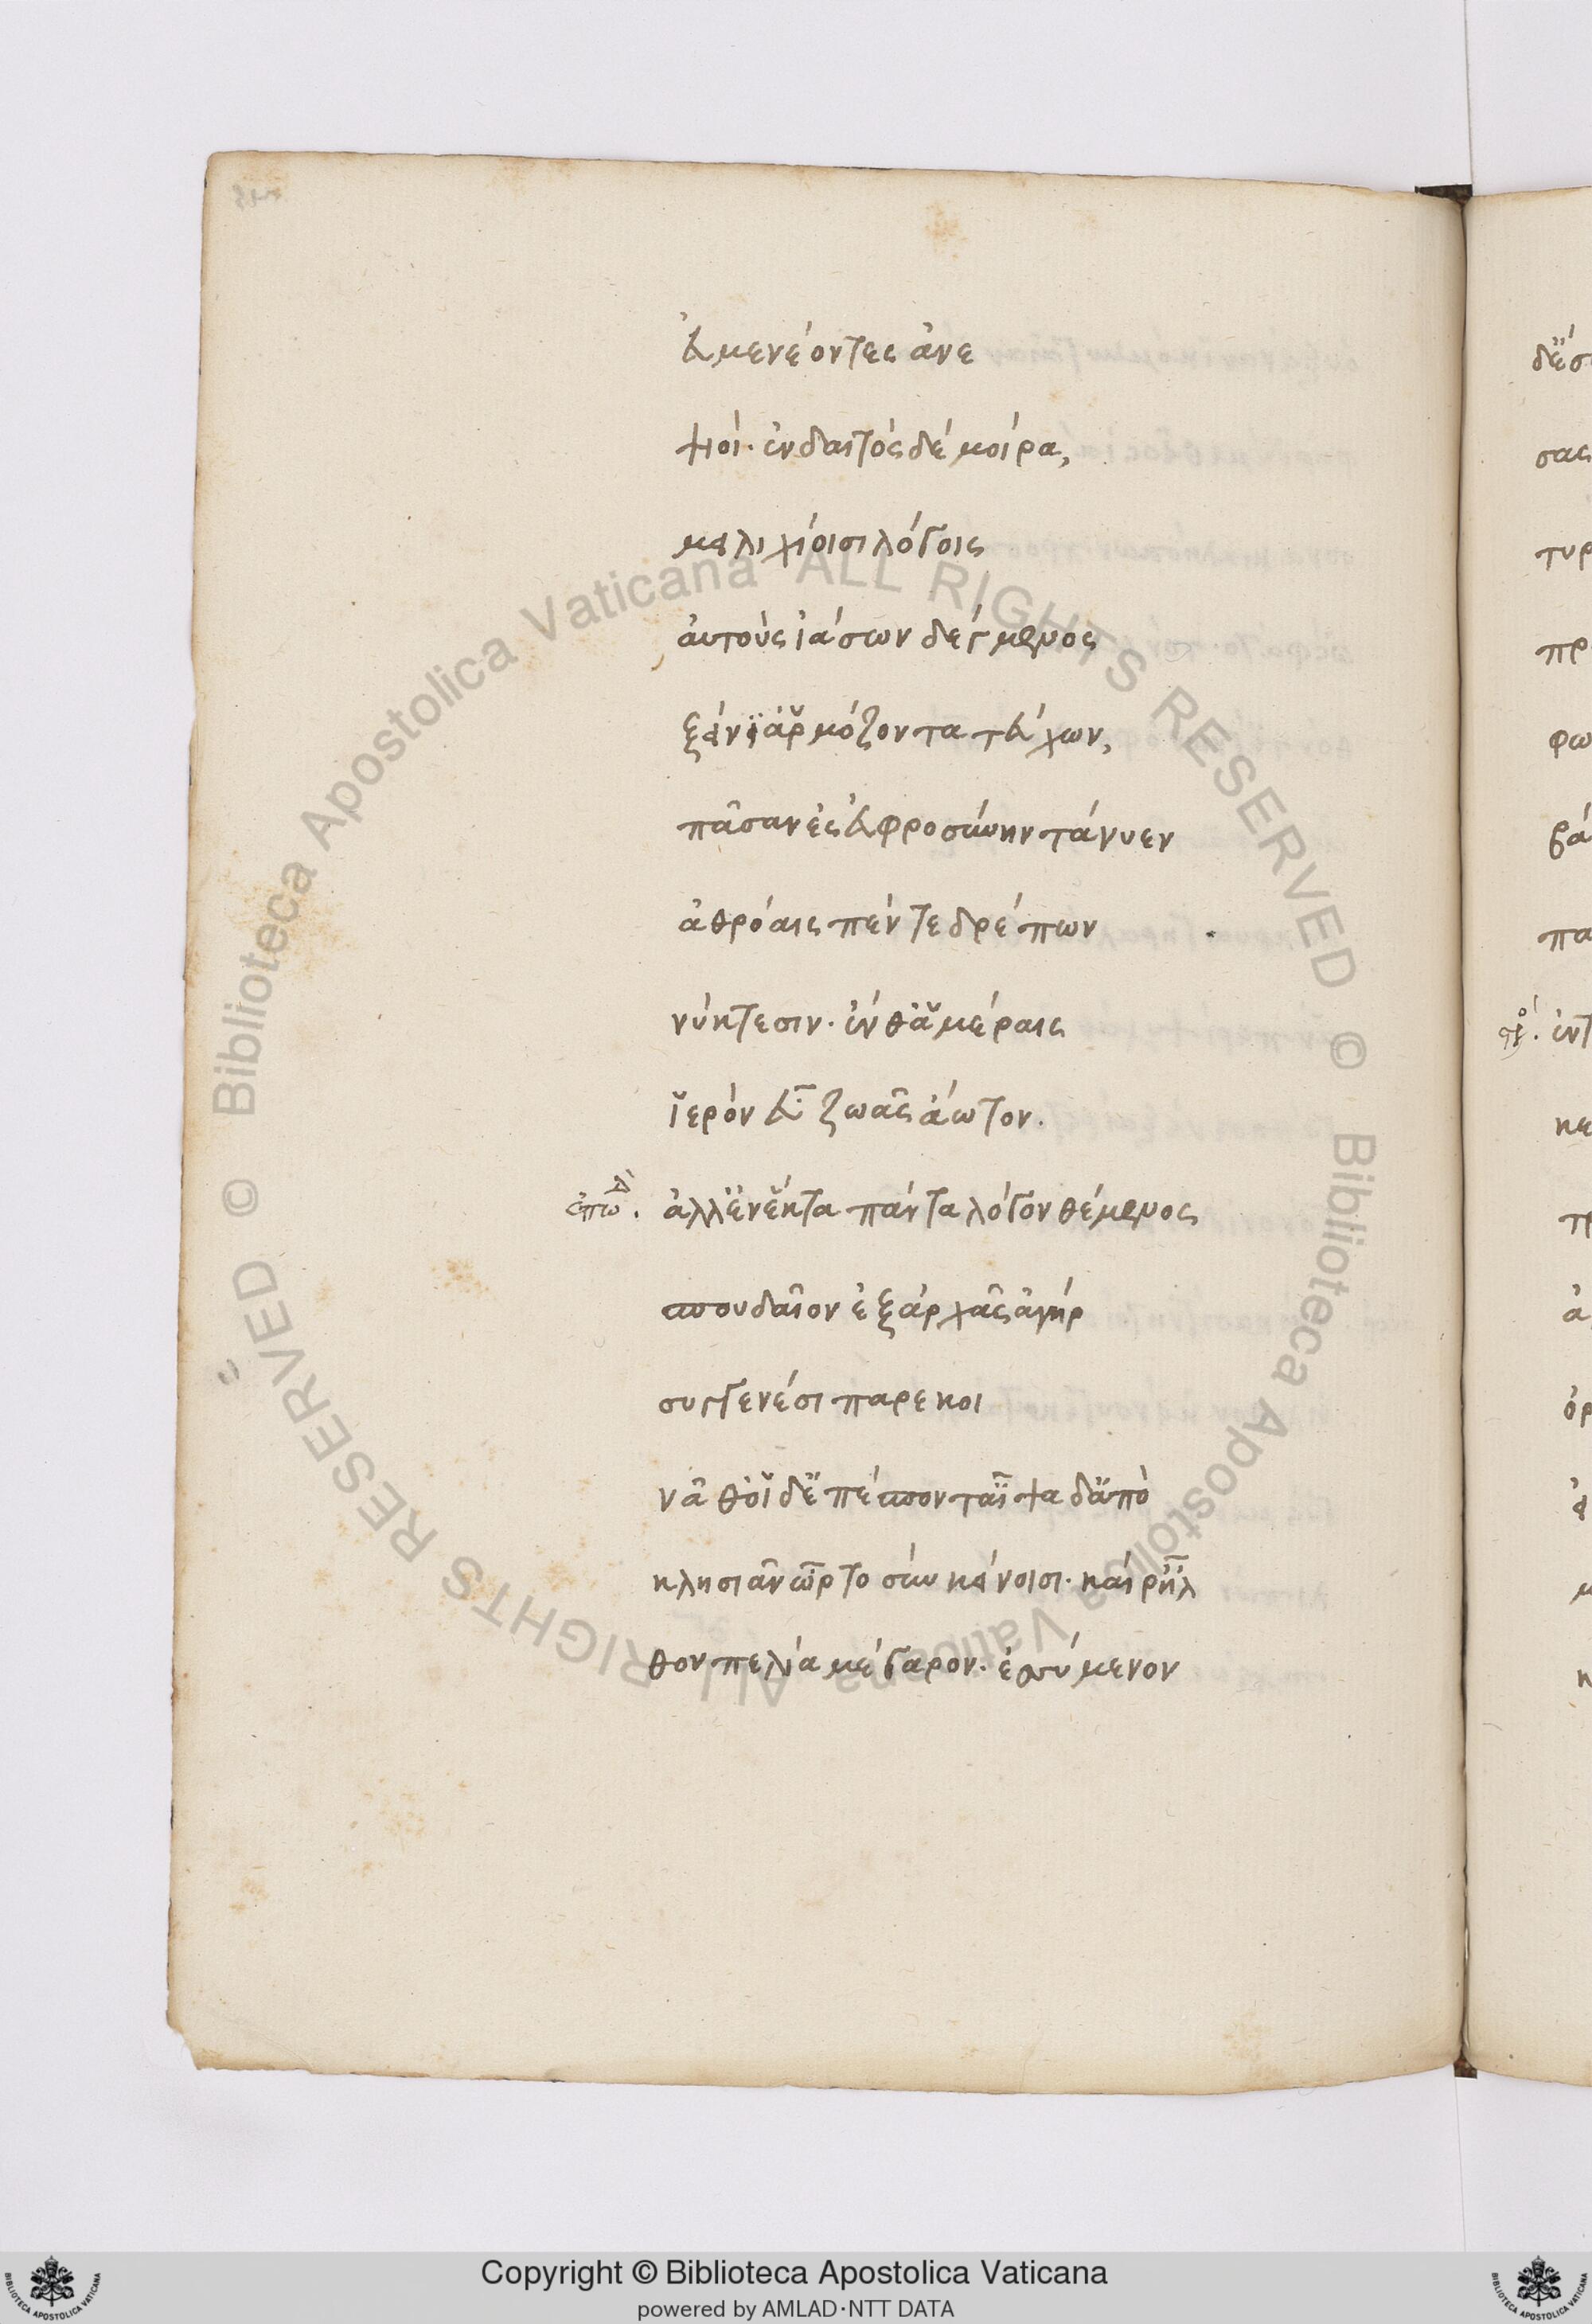 εὐμενέοντες ἀνε
ψιοί· ἐν δαιτὸς δὲ μοίρᾳ,
μειλιχίοισι λόγοις
αὐτοὺς ἰάσων δέγμενος
ξείνϊ' ἁρμόζοντα τεύχων,
πᾶσαν ἐς εὐφροσύνην τάνυεν
ἀθρόαις πέντε δρέπων
νύκτεσιν· ἔν θ' ἁμέραις
ἱερὸν εὐζωᾶς ἄωτον.
ἐπῳδ. ἀλλ' ἐν ἕκτᾳ πάντα λόγον θέμενος
σπουδαῖον ἐξ ἀρχᾶς ἀνὴρ
συγγενέσι παρεκοι
νᾶθ' οἱ δ' ἐπέσποντ' αἶψα δ' ἀπὸ
κλησιᾶν ὦρτο σὺν κείνοισι· καί ρ' ἦλ
θον πελία μέγαρον· ἐσσύμενον
δ' ἔσ
σας
τυρ
πρ
φω
βά
πα
ἐντ
κε
ἀ
ὀρ
Copyright © Biblioteca Apostolica Vaticana
powered by AMLAD·NTT DATA
Biblioteca Apostolica Vaticana ALL RIGHTS RESERVED ©
Biblioteca Apostolica Vaticana ALL RIGHTS RESERVED ©